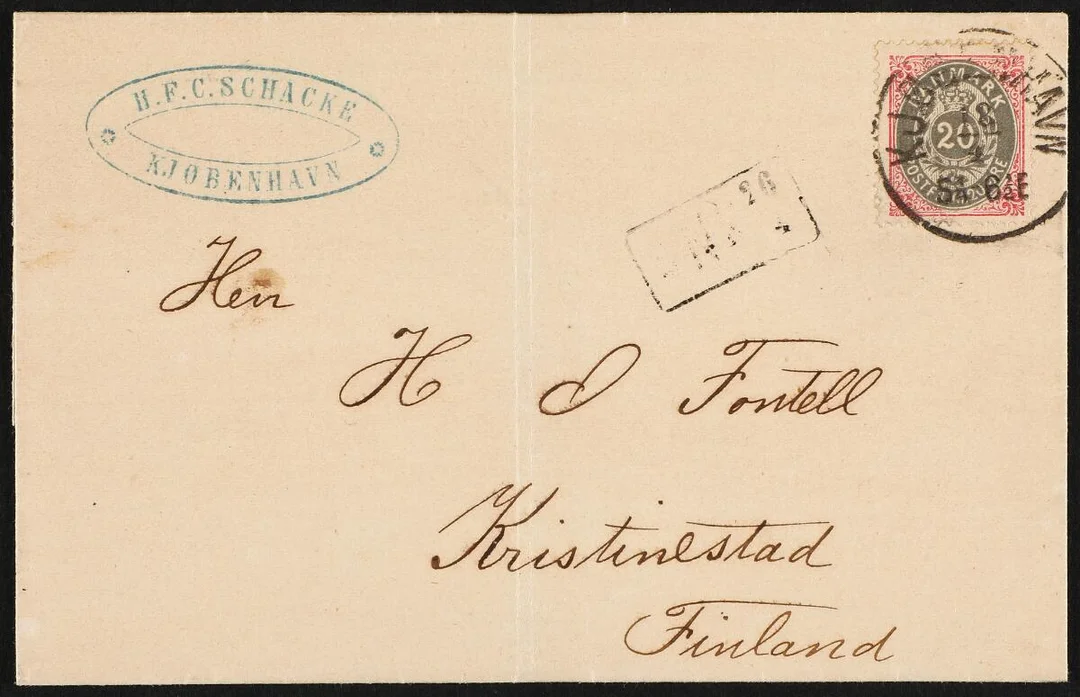 H.F.C. SCHACKE
KJØBENHAVN
DANMARK
20
POSTFRIM. ØRE
KJØBENHAVN
St. 6½E
26
4
Herr
H I Fontell
Kristinestad
Finland